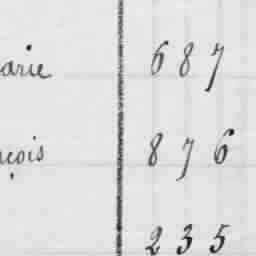 arie 687
çois 876
235